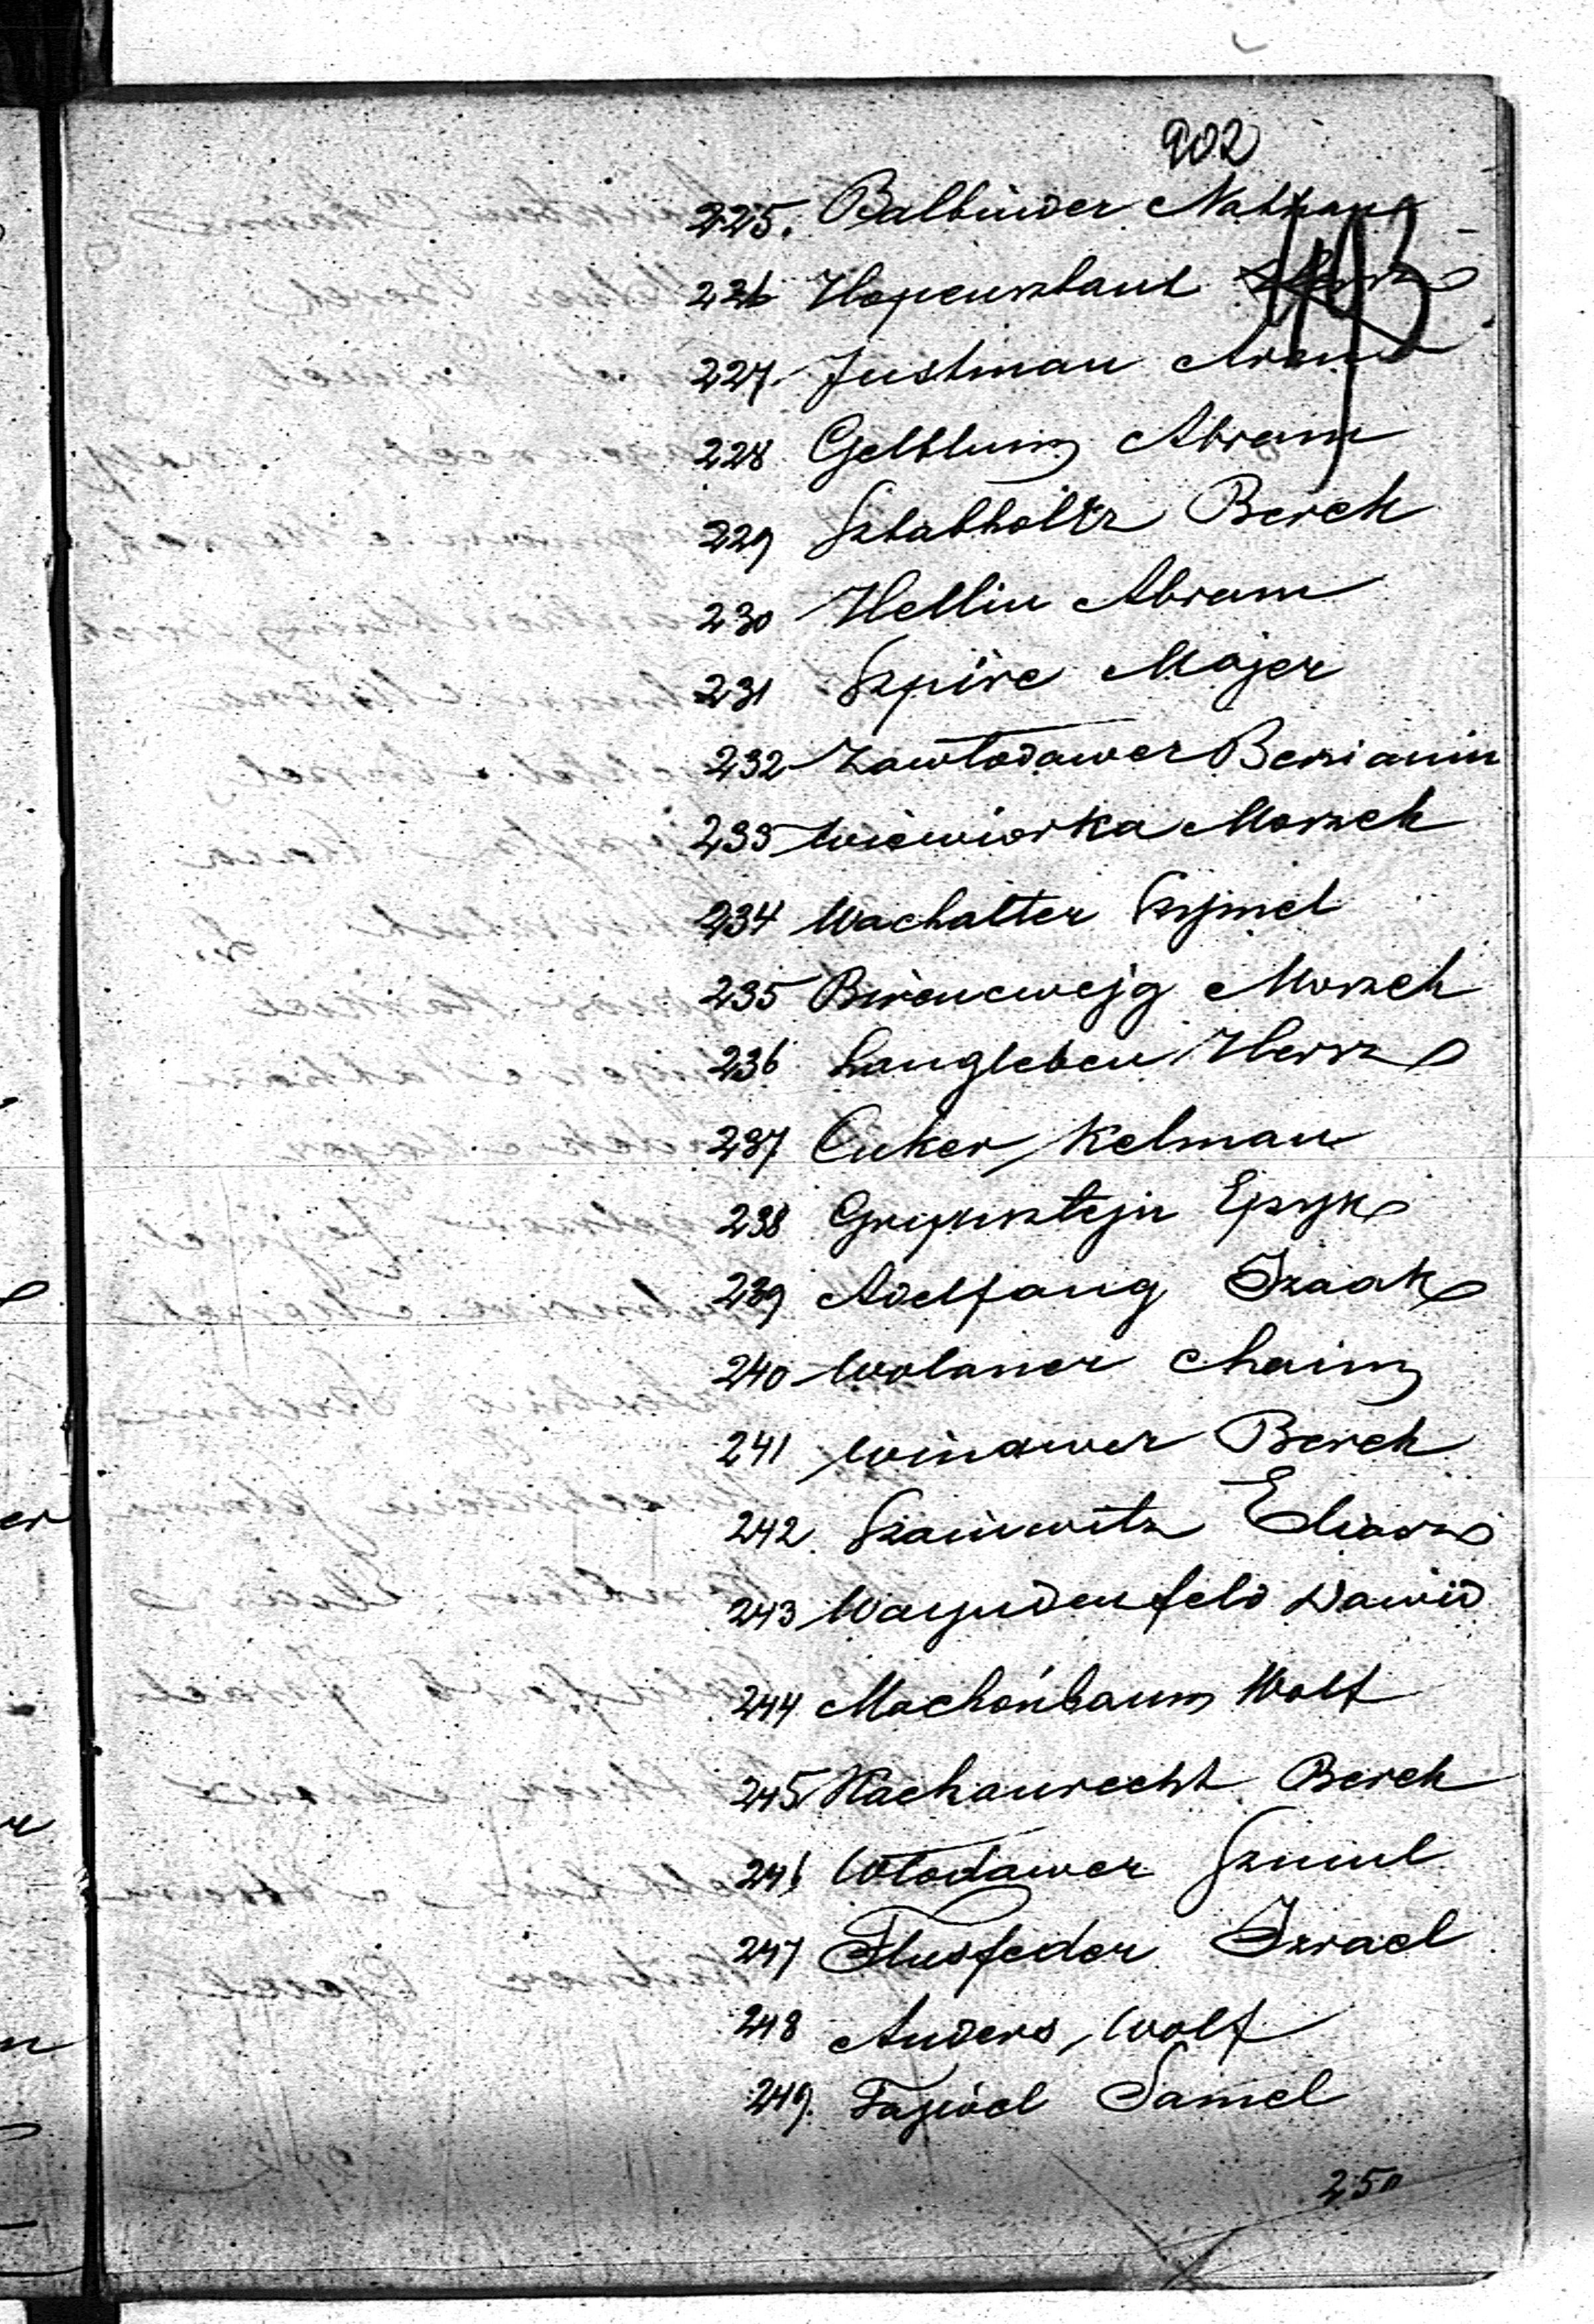 902
493
225. Balbinder Nathan
226 Hopensztant Hersz
227. Justman Aron
228 Gelblum Abram
229 Sztabholtz Berek
230 Hellin Abram
231 Szpire Majer
232 Zawłodawer Beniamin
233 Wiewiorka Moszek
234 Wachalter Szymel
235 Birencwejg Moszek
236 Langleben Hersz
237 Cuker Kelman
238 Grynsztejn Eyzyk
239 Adelfang Izaak
240 Wolaner Chaim
241 Winawer Berek
242. Szainwitz Eliasz
243 Wayndenfeld Dawid
244 Machonbaum Wolf
245 Kachanrecht Berek
246 Włodawer Szmul
247 Flusfeder Izrael
248 Anders Wolf
249. Samel
250